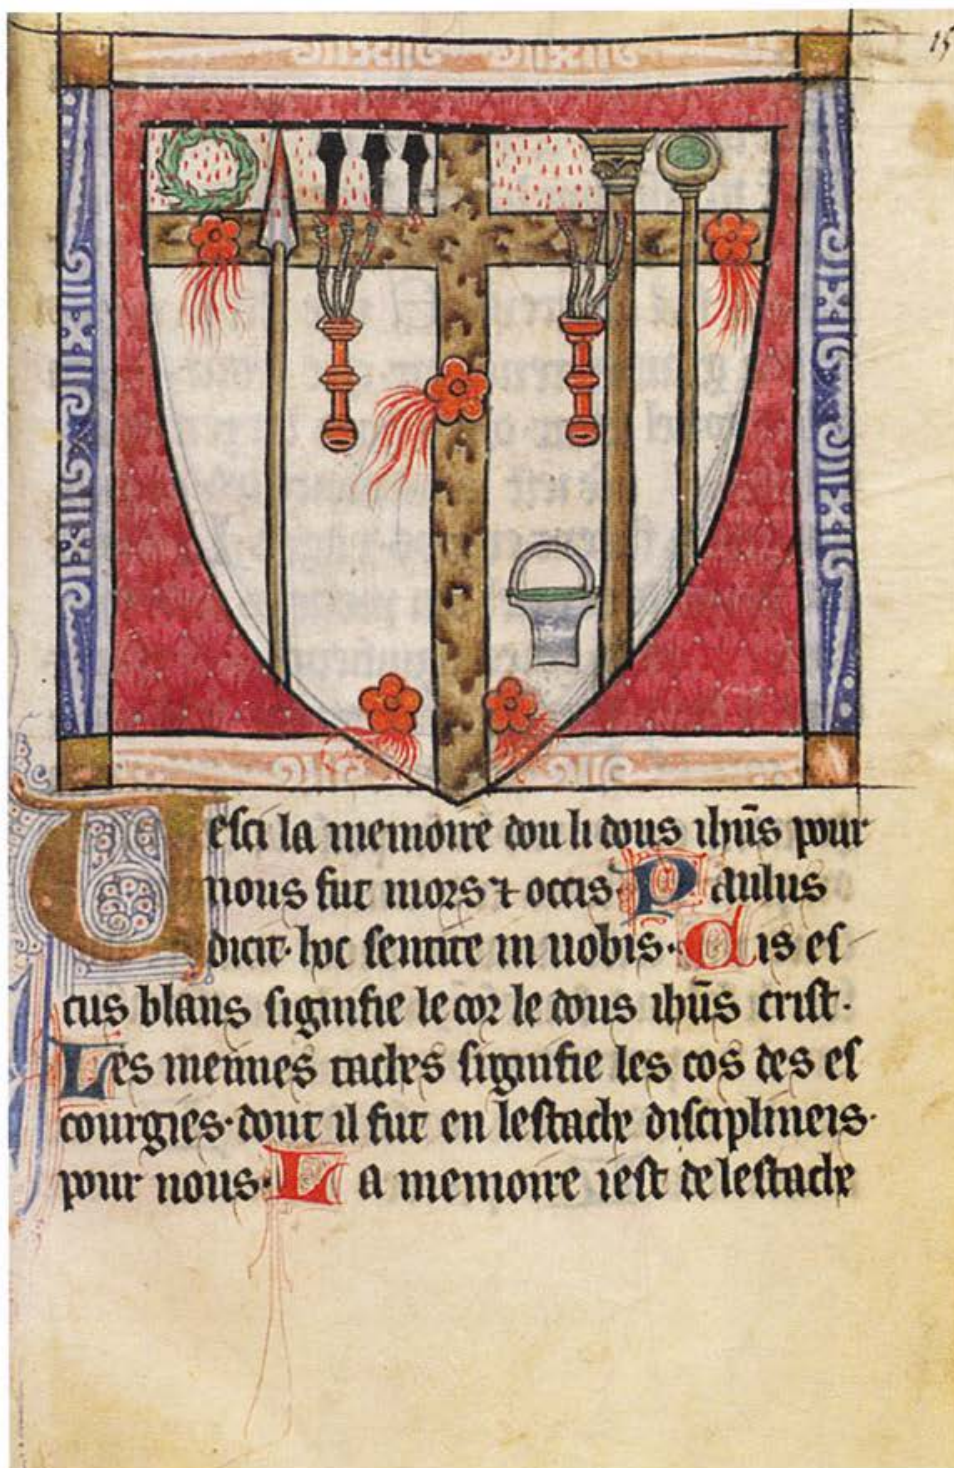 15
Vesci la memoire cou li dous ihūs pour
nous fut mors ⁊ occis. Paulus
dicit. hoc sentite in uobis. Cis es
cus blans signifie le cor le dous ihūs crist.
Les menues taches signifie les cos des es
courgies. dont il fut en lestache disciplineis.
pour nous. La memoire iest de lestache